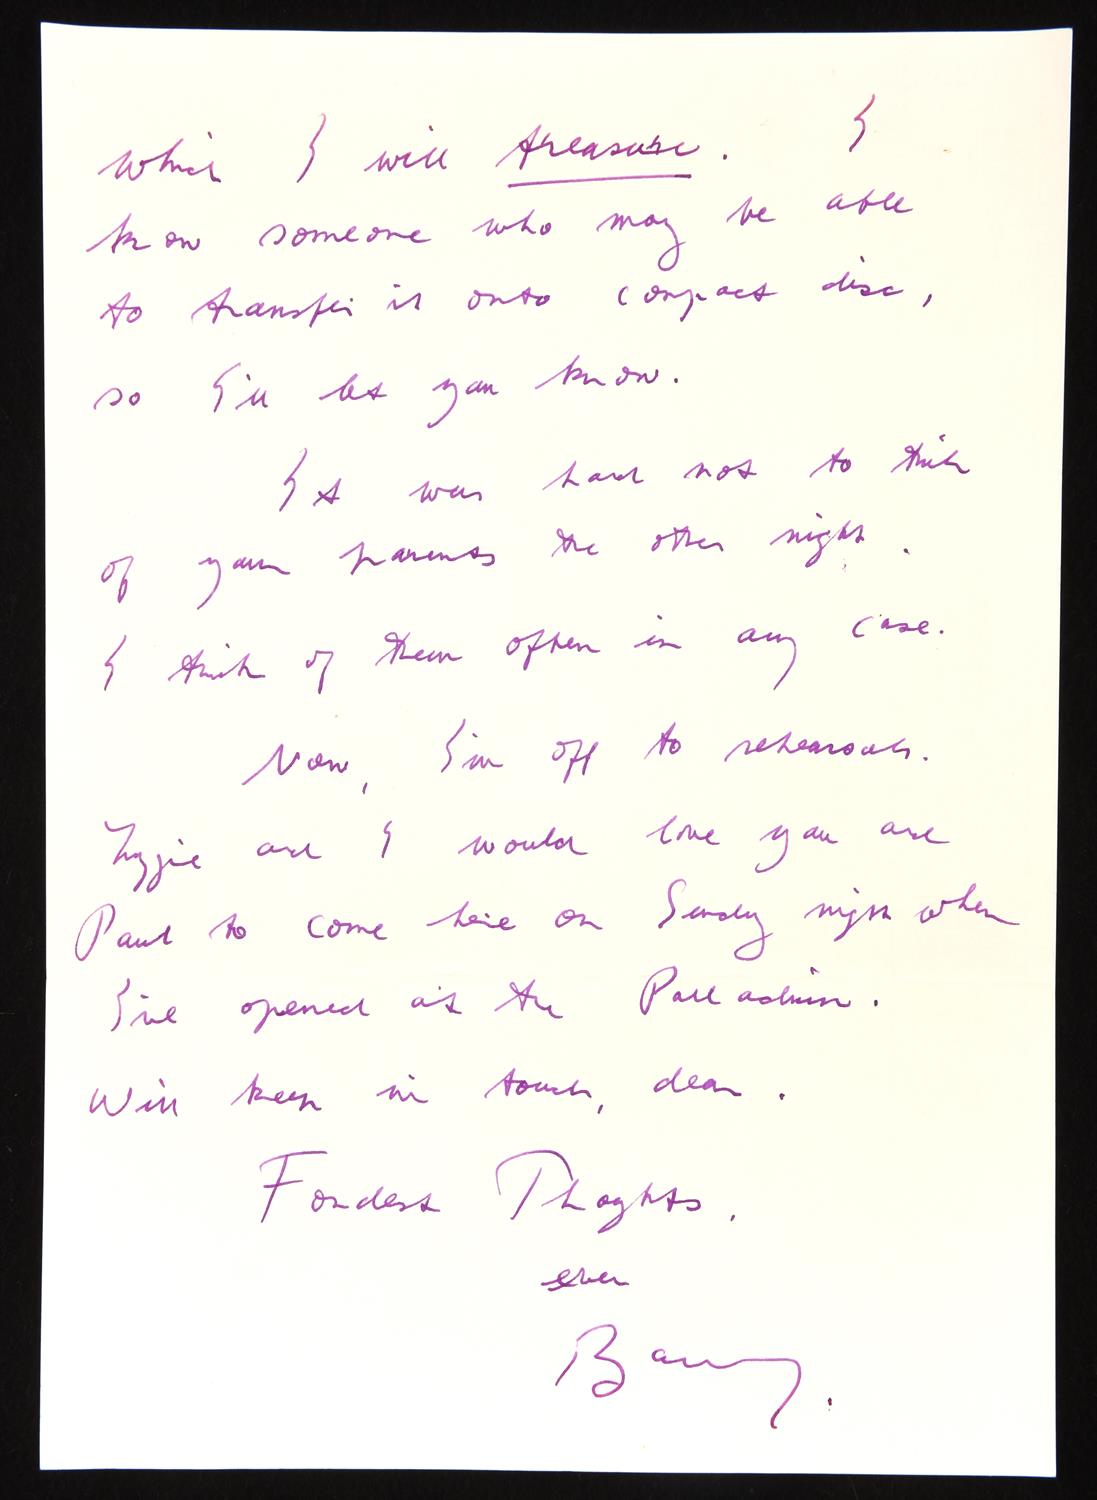 which I will treasure. I
know someone who may be able
to transfer it onto compact disc,
so I'll let you know.
It was hard not to think
of your parents the other night.
I think of them often in any case.
Now, I'm off to rehearsals.
and I would love you and
Paul to come here on Sunday night when
I've opened at the Palladium.
Will keep in touch, dear.
Fondest Thoghts,
ever
Barry.